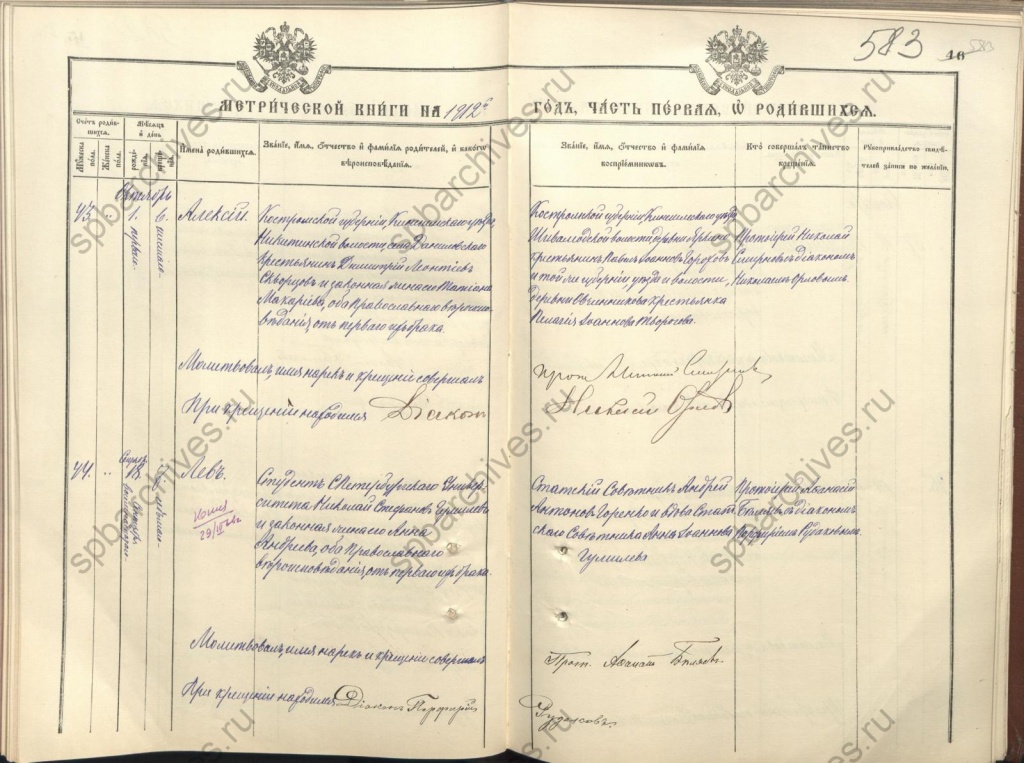 583
46
583
МЕТРИ́ЧЕСКОЙ КНИ́ГИ НА 1912й ГО́ДЪ, ЧА́СТЬ ПЕ́РВАЯ, Ѡ РОДИ́ВШИХСЯ.
Счетъ роди́вшихся.
Му́жеска по́ла.
Же́нска по́ла.
Мѣ́сяцъ и̂ де́нь
рожде́нія.
креще́нія.
И̂мена роди́вшихся.
Зва́ніе, и̂́мя, ѻ̂́тчество и̂ фами́лія роди́телей, и̂ како́гѡ вѣроисповѣ́данія.
Зва́ніе, и̂́мя, ѻ̂́тчество и̂ фами́лія воспріе́мниковъ.
Кто̀ соверша́лъ та́инство креще́нія.
Рꙋкоприкла́дство свидѣ́телей за́писи по жела́нію.
Октябрь
43.
"
1.
первый
6.
шестаго
Алексій.
Костромской губерніи, Кинешемскаго уѣзда,
Никитинской волости, села Даниловскаго
крестьянинъ Димитрій Леонтіевъ
Скворцовъ и законная жена его Татіана
Макаріева, оба Православнаго вѣроиспо-
вѣданія, отъ перваго ихъ брака.
Костромской губерніи, Кинешемскаго уѣзда
волости, деревни
крестьянинъ Павелъ Іоанновъ Гороховъ
и той же губерніи уѣзда и волости,
деревни Овчинникова крестьянка
Пелагія Іоаннова
Протоіерей Николай
Смирновъ съ діакономъ
Николаемъ Орловымъ.
Молитвовалъ, имя нарекъ и крещеніе совершалъ
прот. Николай Смирновъ,
При крещеніи находился Діаконъ
Николай Орловъ
44.
"
Сентяб.
18.
Левъ.
Студентъ С.Петербургскаго Универ-
ситета Николай Стефановъ Гумилевъ
и законная жена его Анна
Андреева, оба Православнаго
вѣроисповѣданія, отъ перваго ихъ брака.
Статскій Совѣтникъ Андрей
Антоновъ Горенко и вдова Стат-
скаго Совѣтника Анна Іоаннова
Гумилева
Протоіерей Аѳанасій
Бѣляевъ съ діакономъ
Порфиріемъ Рудаковымъ.
Молитвовалъ, имя нарекъ и крещеніе совершалъ
Прот. Аѳанасій Бѣляевъ.
При крещеніи находился Діаконъ Порфирій
Рудаковъ.
spbarchives.ru
spbarchives.ru
spbarchives.ru
spbarchives.ru
spbarchives.ru
spbarchives.ru
spbarchives.ru
spbarchives.ru